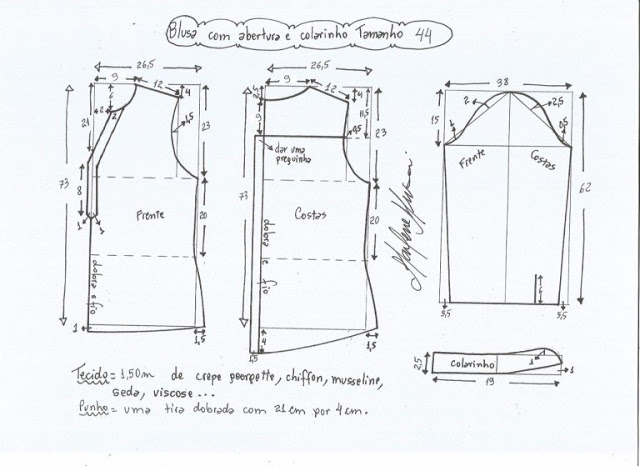 Blusa com abertura e colarinho Tamanho 44
26,5
9
12
6
4
2
2
21
1,5
23
73
8
1
1
Frente
20
dobra e fio
1
1,5
26,5
9
12
4
9
11,5
0,5
dar uma
preguinha
23
73
Costas
20
dobra e fio
4
1,5
1,5
38
2
2,5
15
1
0,5
Frente
Costas
62
6
3,5
3,5
Marlene Mukai
2,5
colarinho
1
1
19
Tecido = 1,50m de crepe georgette, chiffon, musseline,
seda, viscose ...
Punho = uma tira dobrada com 21 cm por 4 cm.